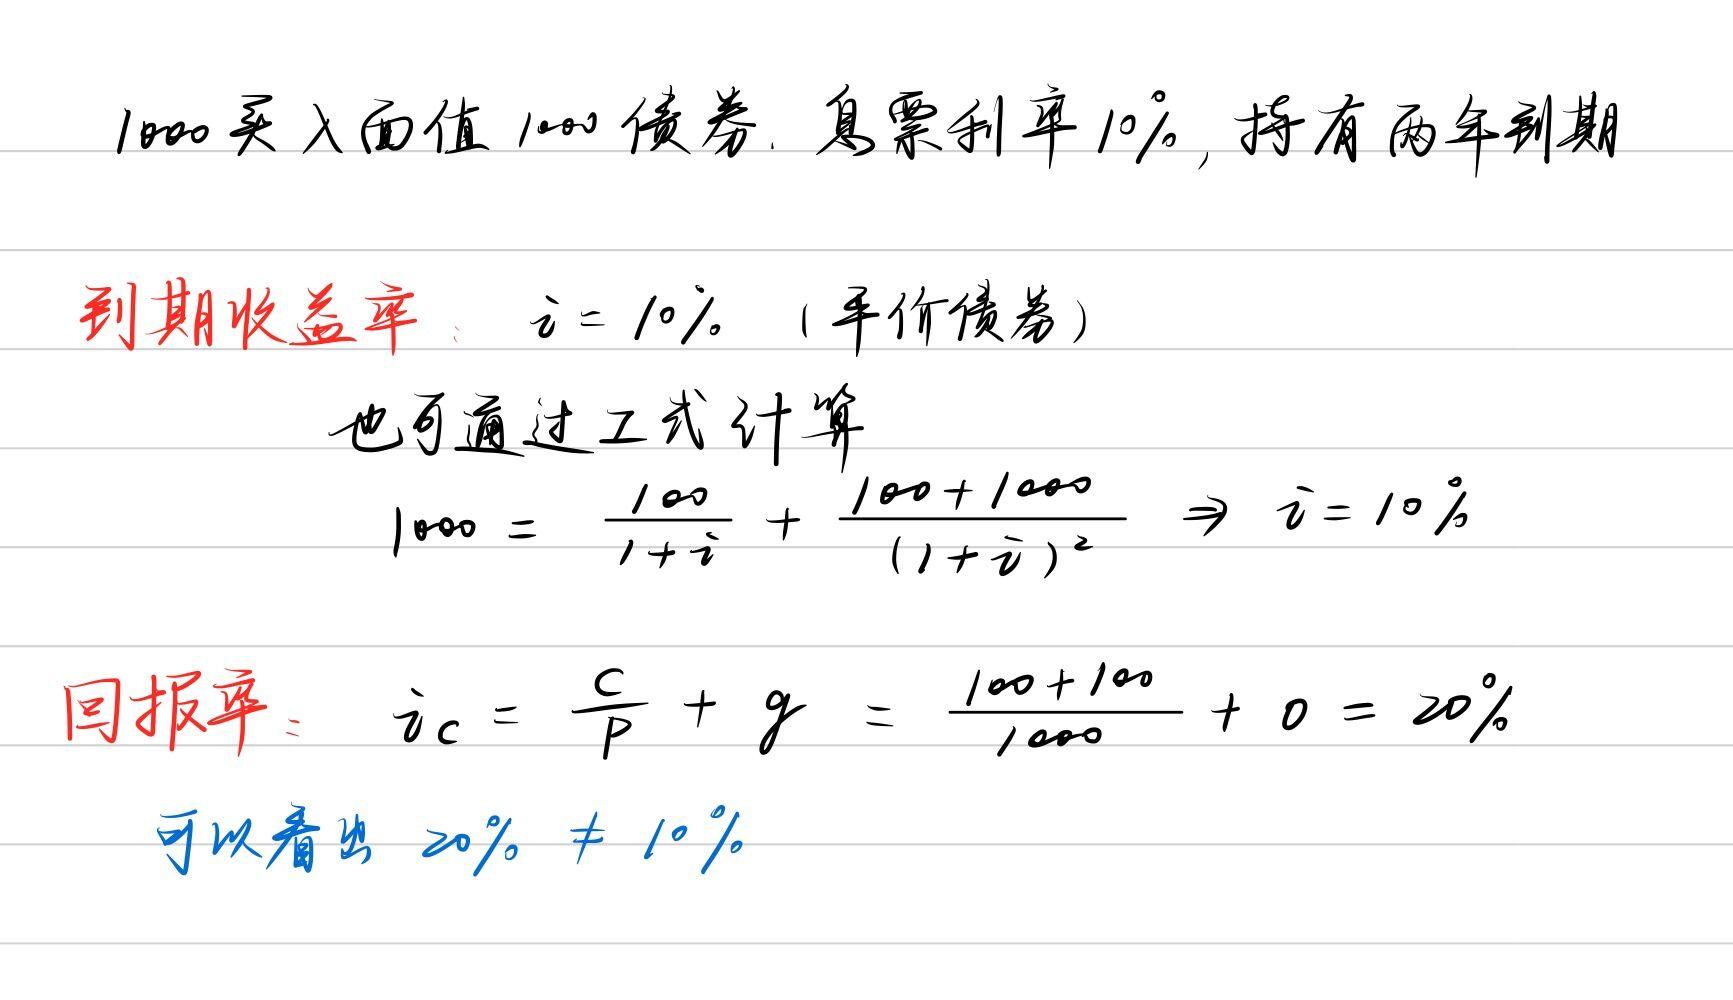 1000买入面值1000债券.息票利率10%,持有两年到期
到期收益率: i = 10% (平价债券)
也可通过工式计算
1000 = 100/(1+i) + (100+1000)/(1+i)² ⇒ i = 10%
回报率: i_c = C/P + g = (100+100)/1000 + 0 = 20%
可以看出 20% ≠ 10%